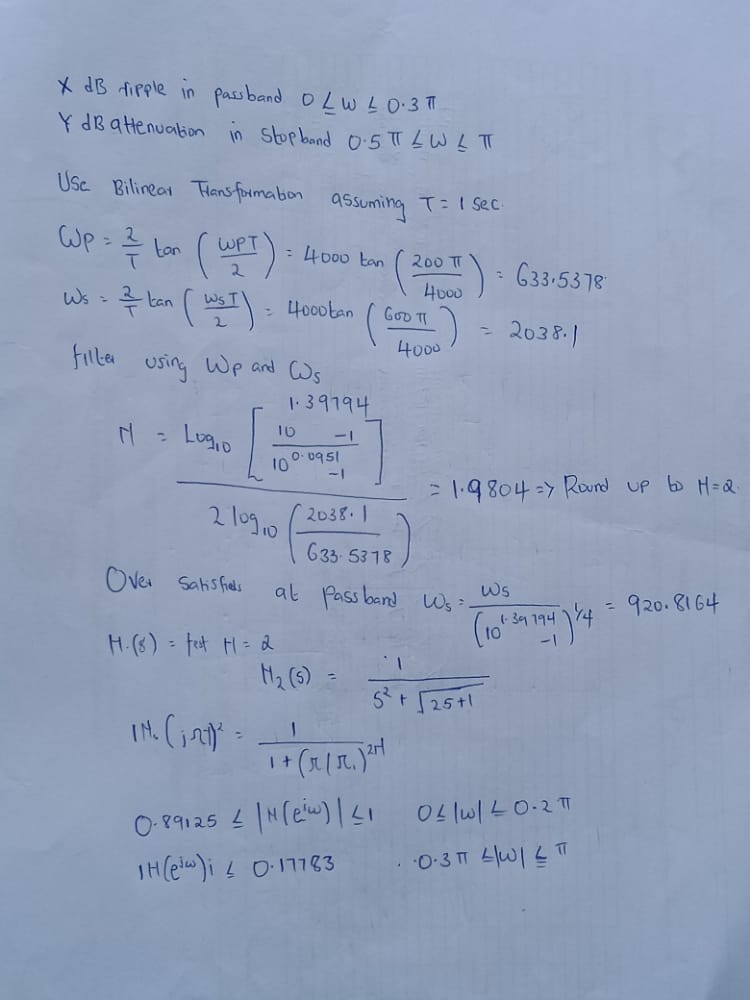 X dB ripple in passband 0 ≤ w ≤ 0.3 π
Y dB attenuation in stopband 0.5 π ≤ w ≤ π
Use Bilinear Transformation assuming T = 1 sec.
Wp = 2/T tan (WPT/2) = 4000 tan (200 π/4000) = 633.5378
Ws = 2/T tan (WsT/2) = 4000 tan (600 π/4000) = 2038.1
filter using Wp and Ws
N = Log₁₀ [(10^1.39794 -1)/(10^0.0951 -1)] / 2 log₁₀ (2038.1/633.5378) = 1.9804 => Round up to N=2
Over Satisfies at Passband Ws = Ws/(10^1.39794 -1)^1/4 = 920.8164
H.(s) = fest H = 2
H₂(s) = 1/(s² + √2s+1)
|H.(jΩ)|² = 1/(1+(Ω/Ω.)^2N)
0.89125 ≤ |H(e^jw)| ≤ 1 0 ≤ |w| ≤ 0.2 π
|H(e^jw)i ≤ 0.17783 . 0.3 π ≤ |w| ≤ π